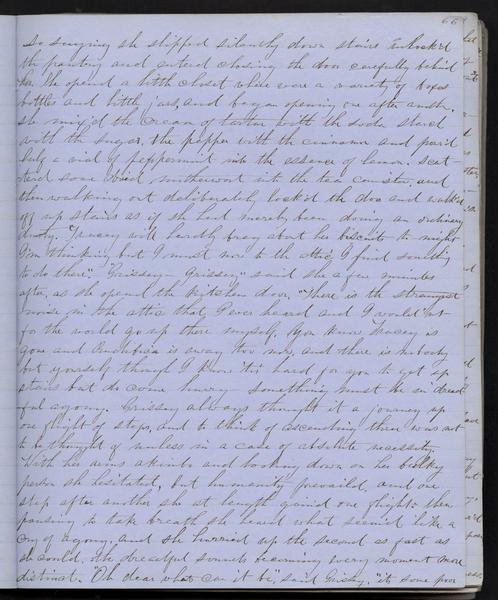 66
So saying she slipped silently down stairs unlock'd
the pantry and entered closing the door carefully behind
her. She opend a little closet where were a variety of boxes
bottles and little jars, and began opening one after another.
She mix'd the cream of tartar with the soda, starch
with the sugar, the pepper with the cinnamon and pour'd
half a vial of peppermint into the essence of lemon, scat-
tered some dried motherwort into the tea canister, and
then walking out deliberately lock'd the door and walk'd
off up stairs as if she had merely been doing an ordinary
duty. "Tracey will hardly brag about her biscuits to-night
I'm thinking but I must now to the attic, I find something
to do there". "Grissey — Grissey" said she a few minutes
after, as she opend the kitchen door, "There is the strangest
noise in the attic that I ever heard and I would n't
for the world go up there myself. You know Tracey is
gone and is away too now, and there is nobody
but yourself, though I know 'tis hard for you to get up
stairs but do come hurry — something must be in dread-
ful agony. Grissey always thought it a journey up
one flight of steps, and to think of ascending three was not
to be thought of unless in a case of absolute necessity.
With her arms akimbo and looking down on her bulky
person she hesitated, but humanity prevail'd, and one
step after another she at length gain'd one flight; then
pausing to take breath, she heard what seem'd like a
cry of agony, and she hurried up the second as fast as
she could, the dreadful sounds becoming every moment more
distinct. "Oh dear what can it be," said Grissey, "it's some poor